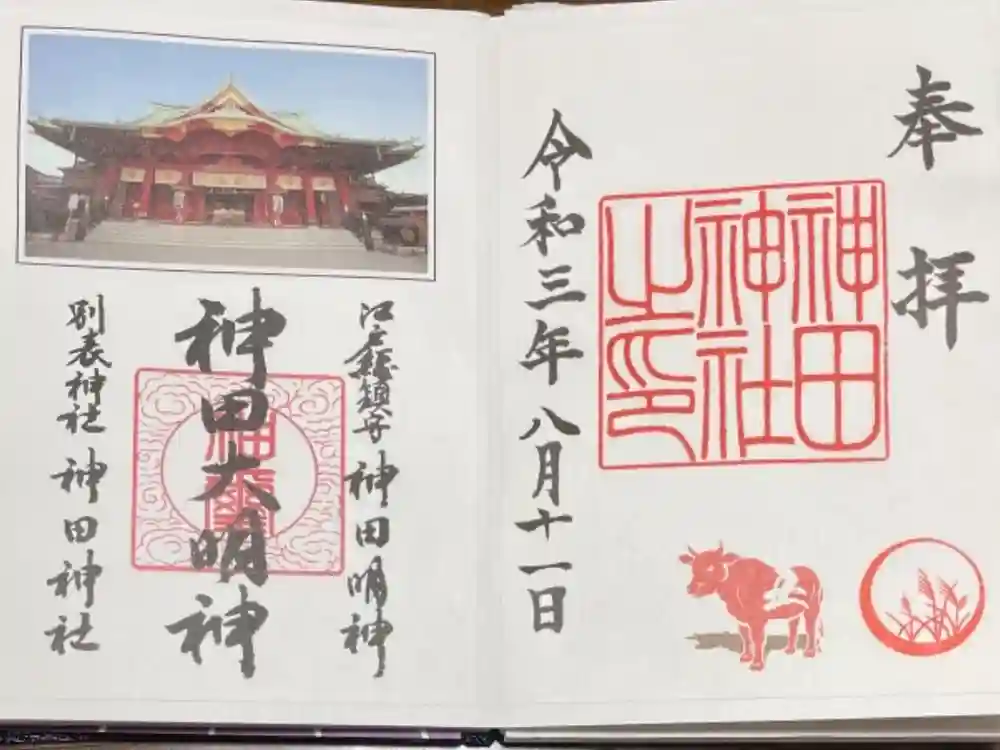 奉拝
神田
神社
之印
令和三年八月十一日
江戸総鎮守 神田明神
神田大明神
別表神社 神田神社